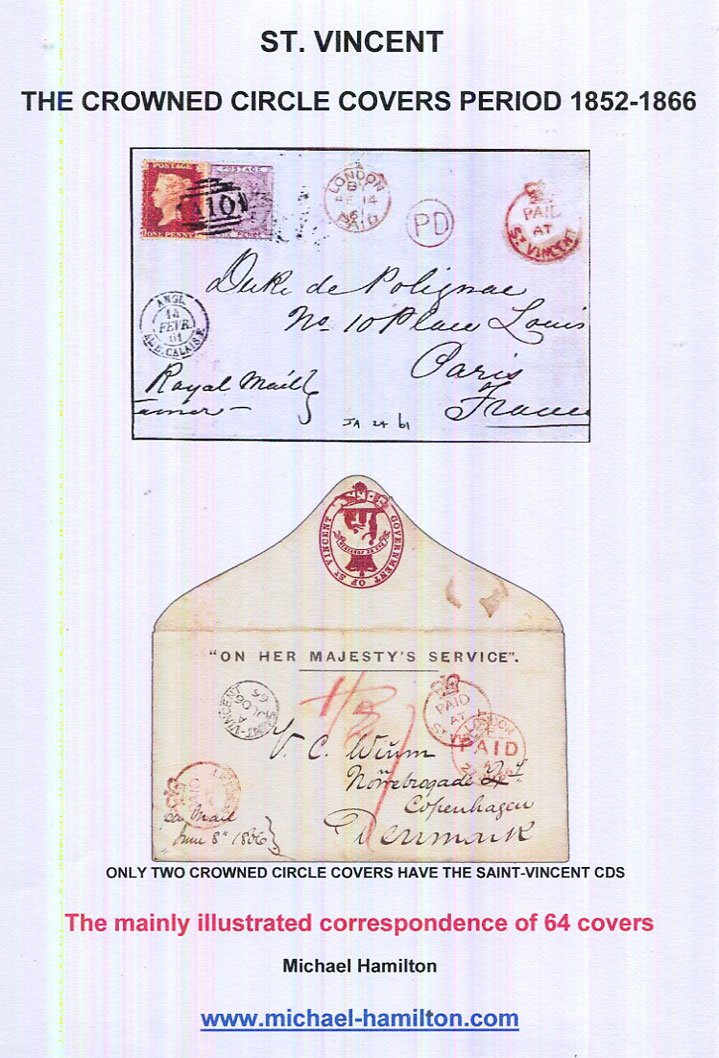 ST. VINCENT
THE CROWNED CIRCLE COVERS PERIOD 1852-1866
POSTAGE
POSTAGE
ONE PENNY
A10
LONDON
BY
FE 14
61
PAID
PD
PAID
AT
ST VINCENT
Duke de Polignac
No. 10 Place Louis
Paris
France
ANGL.
FEVR.
61
AMB. CALAIS
Royal Mail
JA 24 61
GOVERNMENT OF ST VINCENT
"ON HER MAJESTY'S SERVICE".
SAINT-VINCENT
A
JU 06
66
PAID
AT
ST VINCENT
LONDON
PAID
V. C. Wium
Nörrebrogade
Copenhagen
Denmark
per Mail
June 8th 1866
ONLY TWO CROWNED CIRCLE COVERS HAVE THE SAINT-VINCENT CDS
The mainly illustrated correspondence of 64 covers
Michael Hamilton
www.michael-hamilton.com